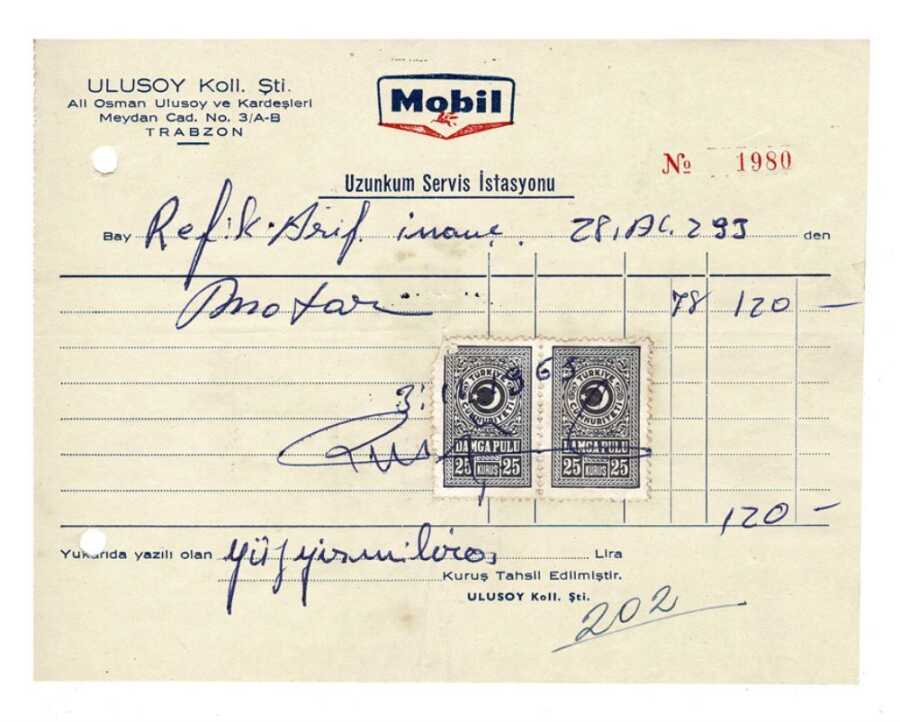 ULUSOY Koll. Şti.
Ali Osman Ulusoy ve Kardeşleri
Meydan Cad. No. 3/A-B
TRABZON
Mobil
№ 1980
Uzunkum Servis İstasyonu
Bay Refik Arif inanç. 28. AC. 299 den
motor 78 120 —
TÜRKİYE CUMHURİYETİ TÜRKİYE CUMHURİYETİ
3. 1965
DAMGA PULU DAMGA PULU
25 KURUŞ 25 25 KURUŞ 25
120 —
Yukarıda yazılı olan yüzyirmi lira Lira
Kuruş Tahsil Edilmiştir.
ULUSOY Koll. Şti.
202